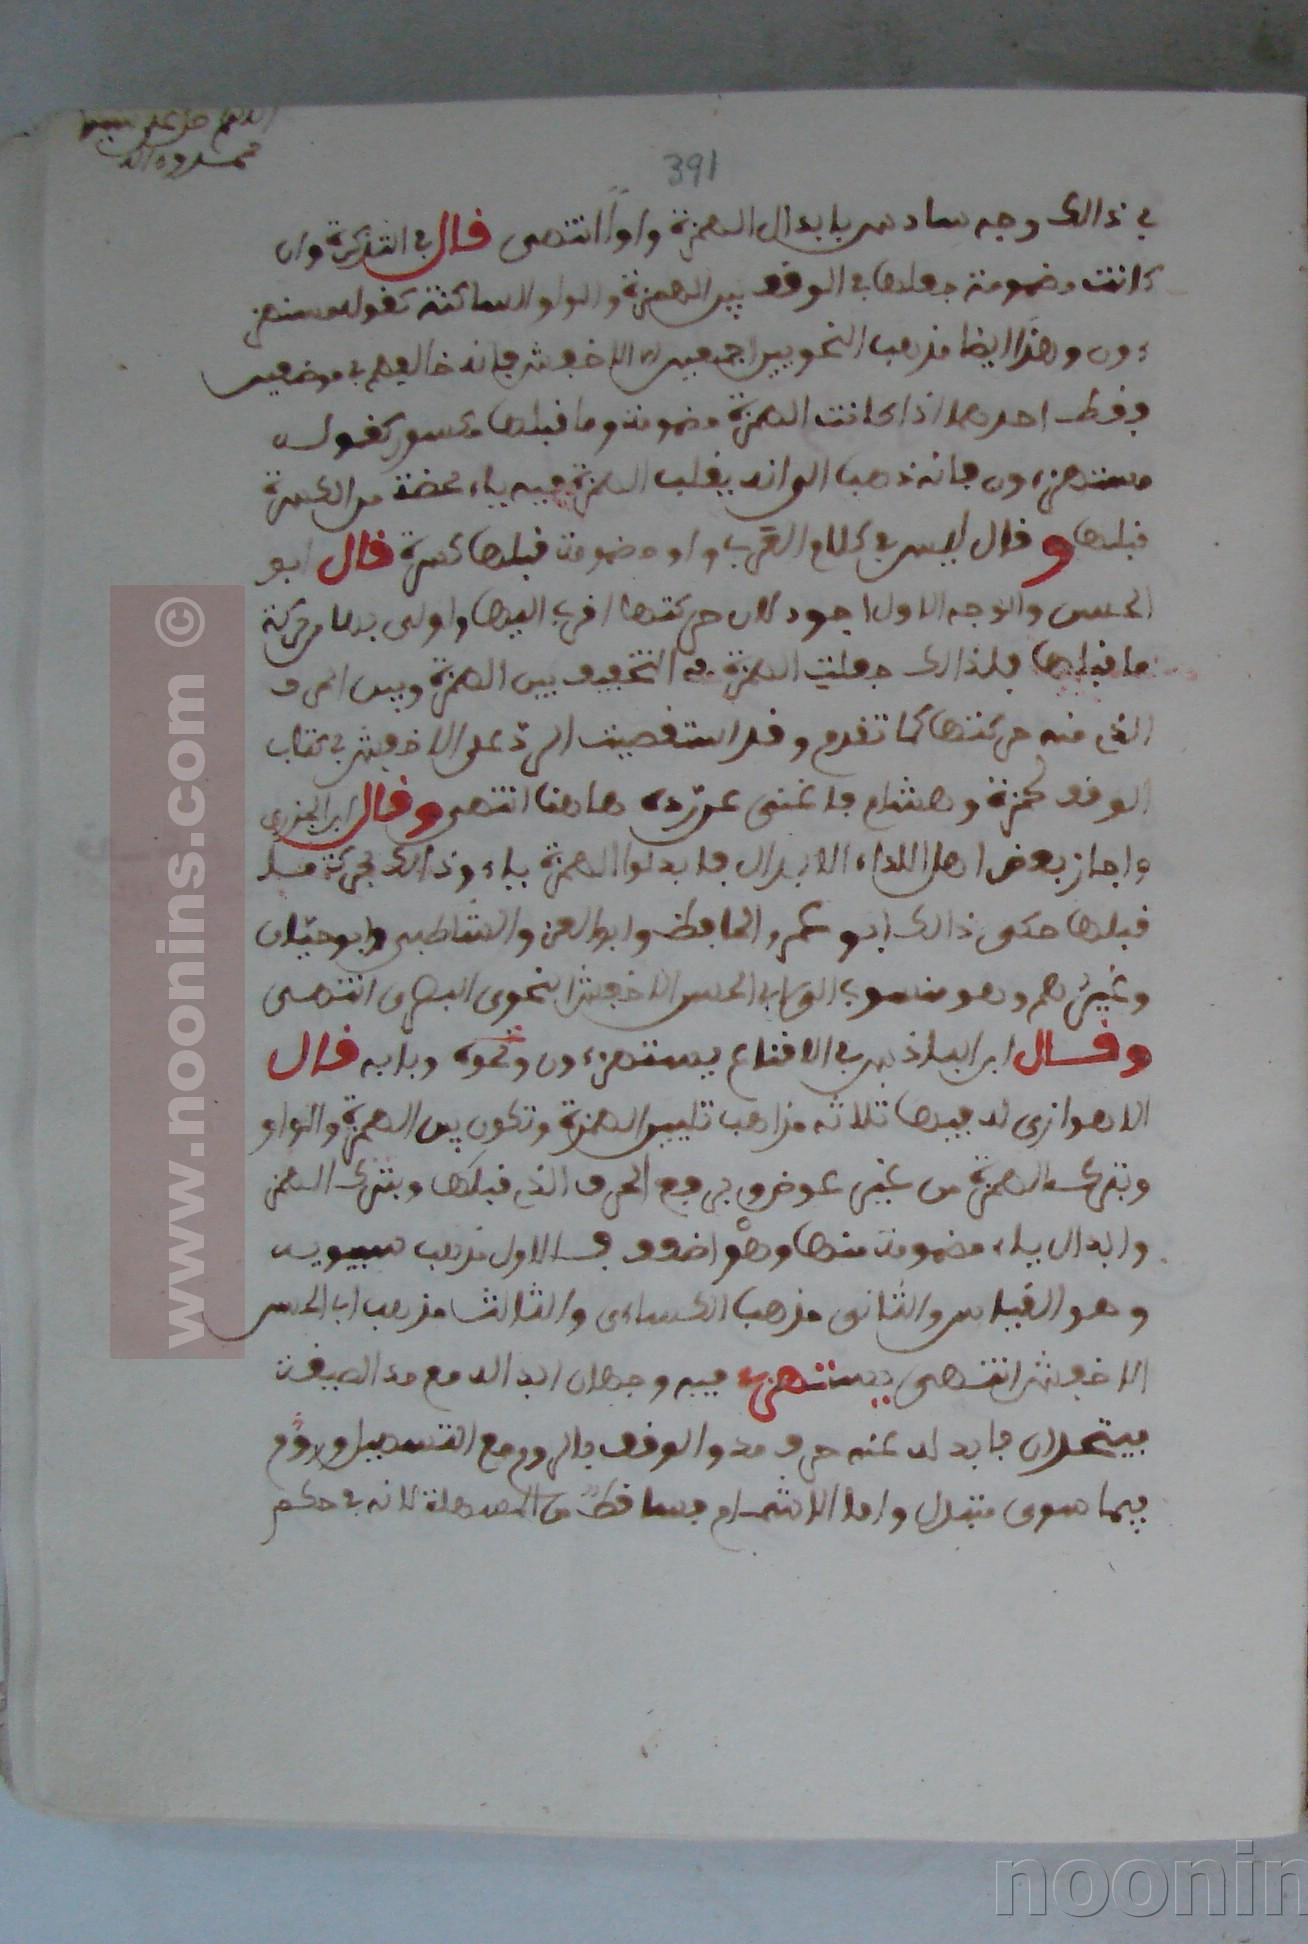 اللهم صل على سيدنا
محمد وءاله
391
في ذالك وجه سادس بابدال الهمزة واوا انتهى قال في التذكرة وان
كانت مضمومة جعلها في الوقف بين الهمزة والواو الساكنة كقوله مستهز
ءون وهذا ايضا مذهب النحويين اجمعين الا الاخفش فانه خالفهم في موضعين
فقط احدهما اذا كانت الهمزة مضمومة وما قبلها مكسور كقوله
مستهزءون فانه ذهب الى انه يقلب الهمزة فيه ياء محضة من الكسرة
قبلها وقال ليس في كلام العرب واو مضمومة قبلها كسرة قال ابو
الحسن والوجه الاول اجود لان حركتها اقرب اليها واولى بها من حركة
ما قبلها فلذالك جعلت الهمزة في التخفيف بين الهمزة وبين الحرف
الذي منه حركتها كما تقدم وقد استقصيت الرد على الاخفش في كتاب
الوقف لحمزة وهشام فاغنى عن رده هاهنا انتهى وقال ابن الجزري
واجاز بعض اهل الاداء الابدال فابدلوا الهمزة ياء وذالك لحركة ما
قبلها حكى ذالك ابو عمرو الحافظ وابو العز والشاطبي وابو حيان
وغيرهم وهو منسوب الى ابي الحسن الاخفش النحوي البصري انتهى
وقال ابن الباذش في الاقناع يستهزءون ونحوه وبابه قال
الاهوازي له فيها ثلاثة مذاهب تليين الهمزة وتكون بين الهمزة والواو
وبترك الهمزة من غير عوض وبرفع الحرف الذي قبلها وبترك الهمز
وابدال ياء مضمومة منها وهو اضعف فالاول مذهب سيبويه
وهو القياس والثاني مذهب الكساءي والثالث مذهب ابي الحسن
الاخفش انتهى يستهزئ فيه وجهان ابداله مع مد الصيغة
فيتحدان فابداله عنه حرف مد والوقف بالروم مع التسهيل وروم
فيما سوى متبدل واما الاشمام فساقط من المسهلة لانه في حكم
www.noonins.com ©
noonin